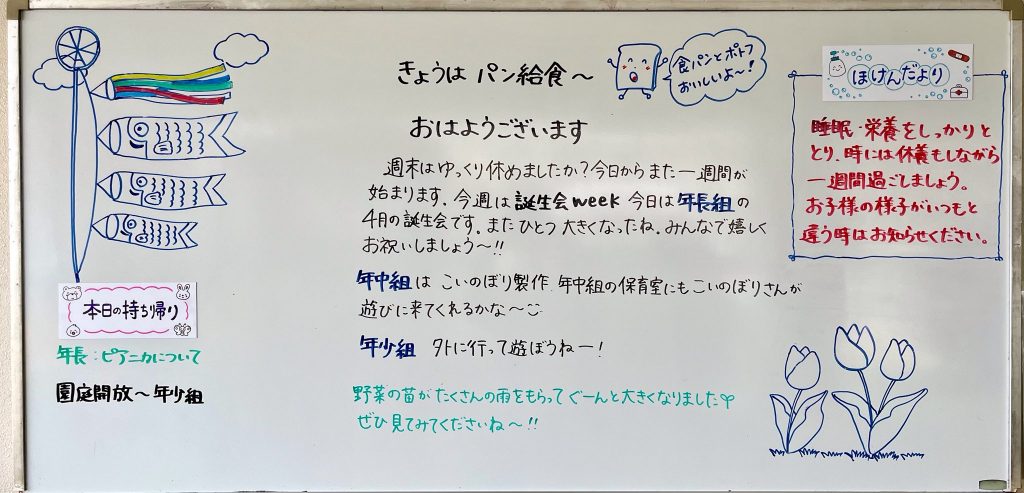 きょうは パン給食～
食パンとポトフ
おいしいよ～！
おはようございます
週末はゆっくり休めましたか？今日からまた一週間が
始まります。今週は誕生会week 今日は年長組の
4月の誕生会です。またひとつ大きくなったね。みんなで嬉しく
お祝いしましょう～!!
年中組は こいのぼり製作。年中組の保育室にもこいのぼりさんが
遊びに来てくれるかな～
年少組 外に行って遊ぼうねー！
野菜の苗がたくさんの雨をもらってぐーんと大きくなりました
ぜひ見てみてくださいね～!!
本日の持ち帰り
年長：ピアニカについて
園庭開放～年少組
ほけんだより
睡眠・栄養をしっかりと
とり、時には休養もしながら
一週間過ごしましょう。
お子様の様子がいつもと
違う時はお知らせください。